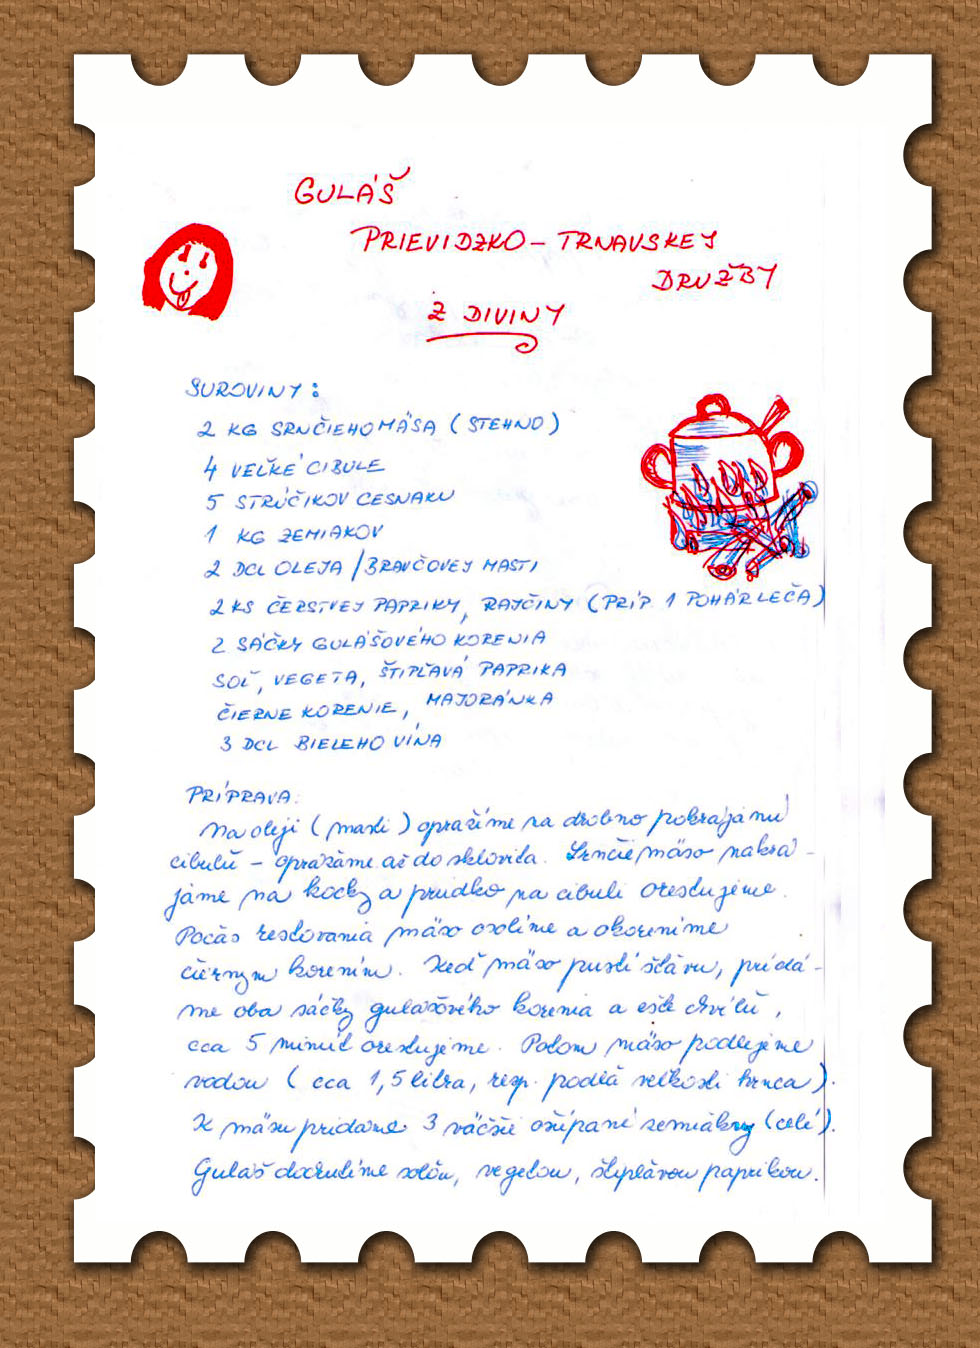 GULÁŠ
PRIEVIDZKO - TRNAVSKEJ
DRUŽBY
Z DIVINY
SUROVINY:
2 KG SRNČIEHO MÄSA (STEHNO)
4 VEĽKÉ CIBULE
5 STRÚČIKOV CESNAKU
1 KG ZEMIAKOV
2 DCL OLEJA / BRAVČOVEJ MASTI
2 KS ČERSTVEJ PAPRIKY, RAJČINY (PRÍP 1 POHÁR LEČA)
2 SÁČKY GULÁŠOVÉHO KORENIA
SOĽ, VEGETA, ŠTIPĽAVÁ PAPRIKA
ČIERNE KORENIE, MAJORÁNKA
3 DCL BIELEHO VÍNA
PRÍPRAVA:
Na oleji (masti) opražíme na drobno pokrájanú
cibuľu - opražáme až do sklovita. Srnčie mäso nakrá-
jame na kocky a prudko na cibuli orestujeme.
Počas restovania mäso osolíme a okoreníme
čiernym korením. Keď mäso pustí šťavu, pridá-
me oba sáčky gulášového korenia a ešte chvíľu,
cca 5 minút orestujeme. Potom mäso podlejeme
vodou (cca 1,5 litra, resp. podľa veľkosti hrnca).
K mäsu pridáme 3 väčšie ošípané zemiaky (celé).
Guláš dochutíme soľou, vegetou, štipľavou paprikou.